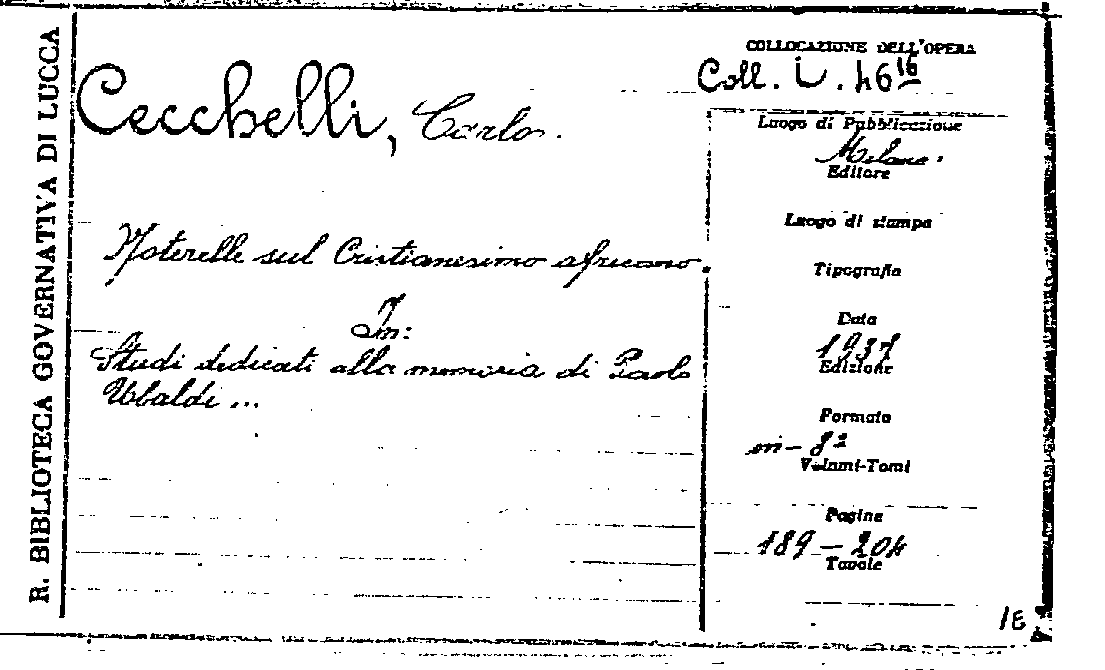 R. BIBLIOTECA GOVERNATIVA DI LUCCA
COLLOCAZIONE DELL'OPERA
Coll. L. 46 16
Cecchelli, Carlo.
Luogo di Pubblicazione
Milano.
Editore
Luogo di stampa
Noterelle sul Cristianesimo africano.
Tipografia
In:
Data
1937
Studi dedicati alla memoria di Paolo
Edizione
Ubaldi ...
Formato
in-8º
Volumi-Tomi
Pagine
189-204
Tavole
IE